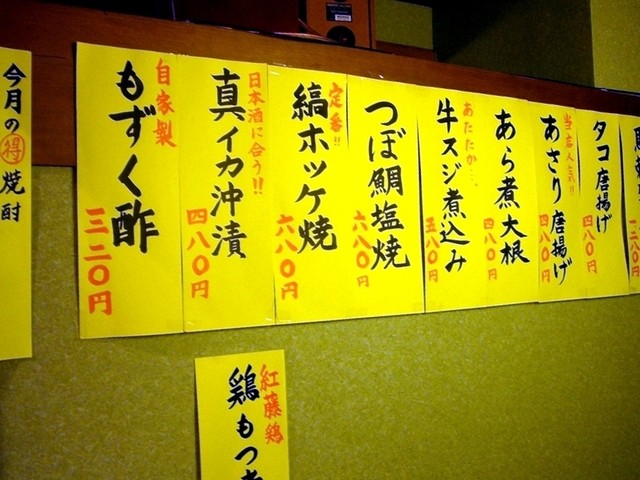 今月の㊝焼酎
自家製
もずく酢
三二〇円
日本酒に合う!!
真イカ沖漬
四八〇円
定番!!
縞ホッケ焼
六八〇円
つぼ鯛塩焼
六八〇円
あたたか…
牛スジ煮込み
五八〇円
あら煮大根
四八〇円
当店人気!!
あさり唐揚げ
四八〇円
タコ唐揚げ
四八〇円
紅藤鶏
鶏もつ